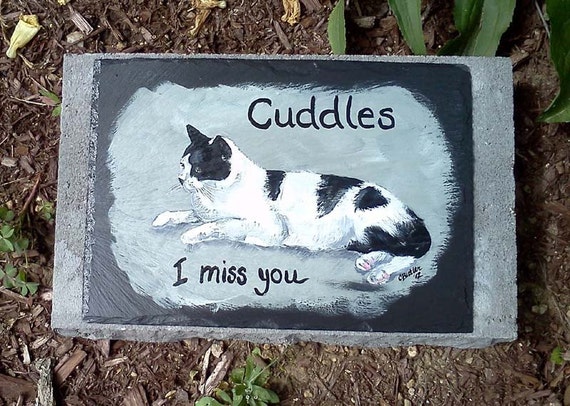 Cuddles
I miss you